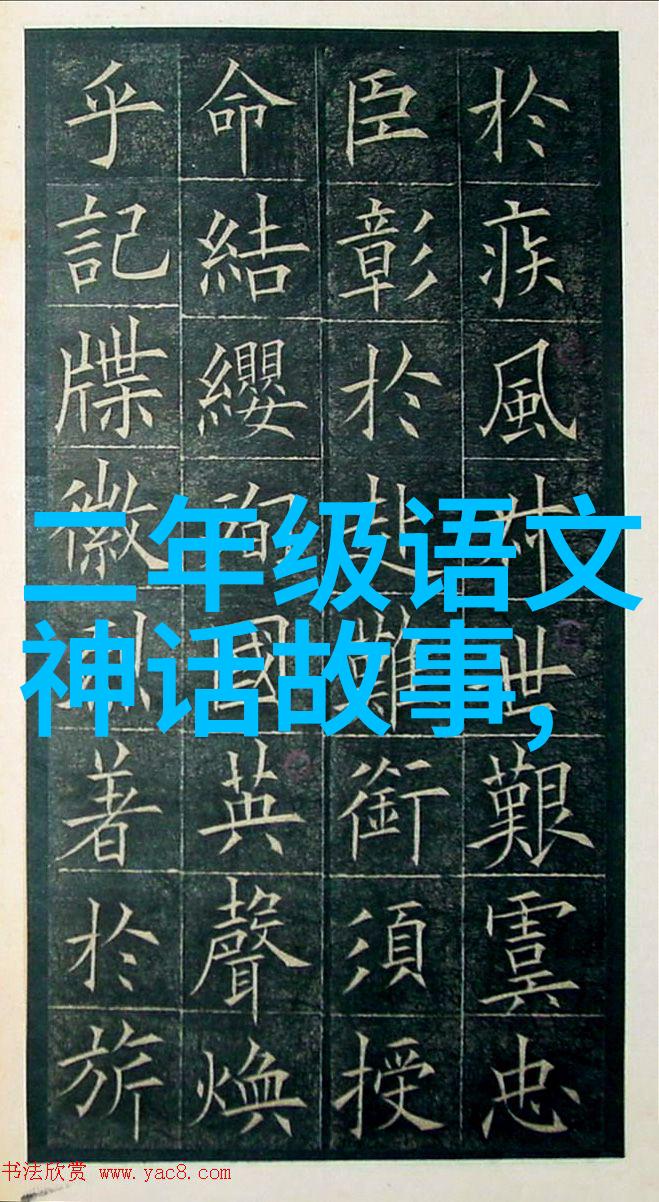 於疾風世艱虞忠
臣彰於赴難銜須授
命結纓國英聲煥
乎記牒徽著於旂
二年级语文
神话故事,
书法欣赏 www.yac8.com